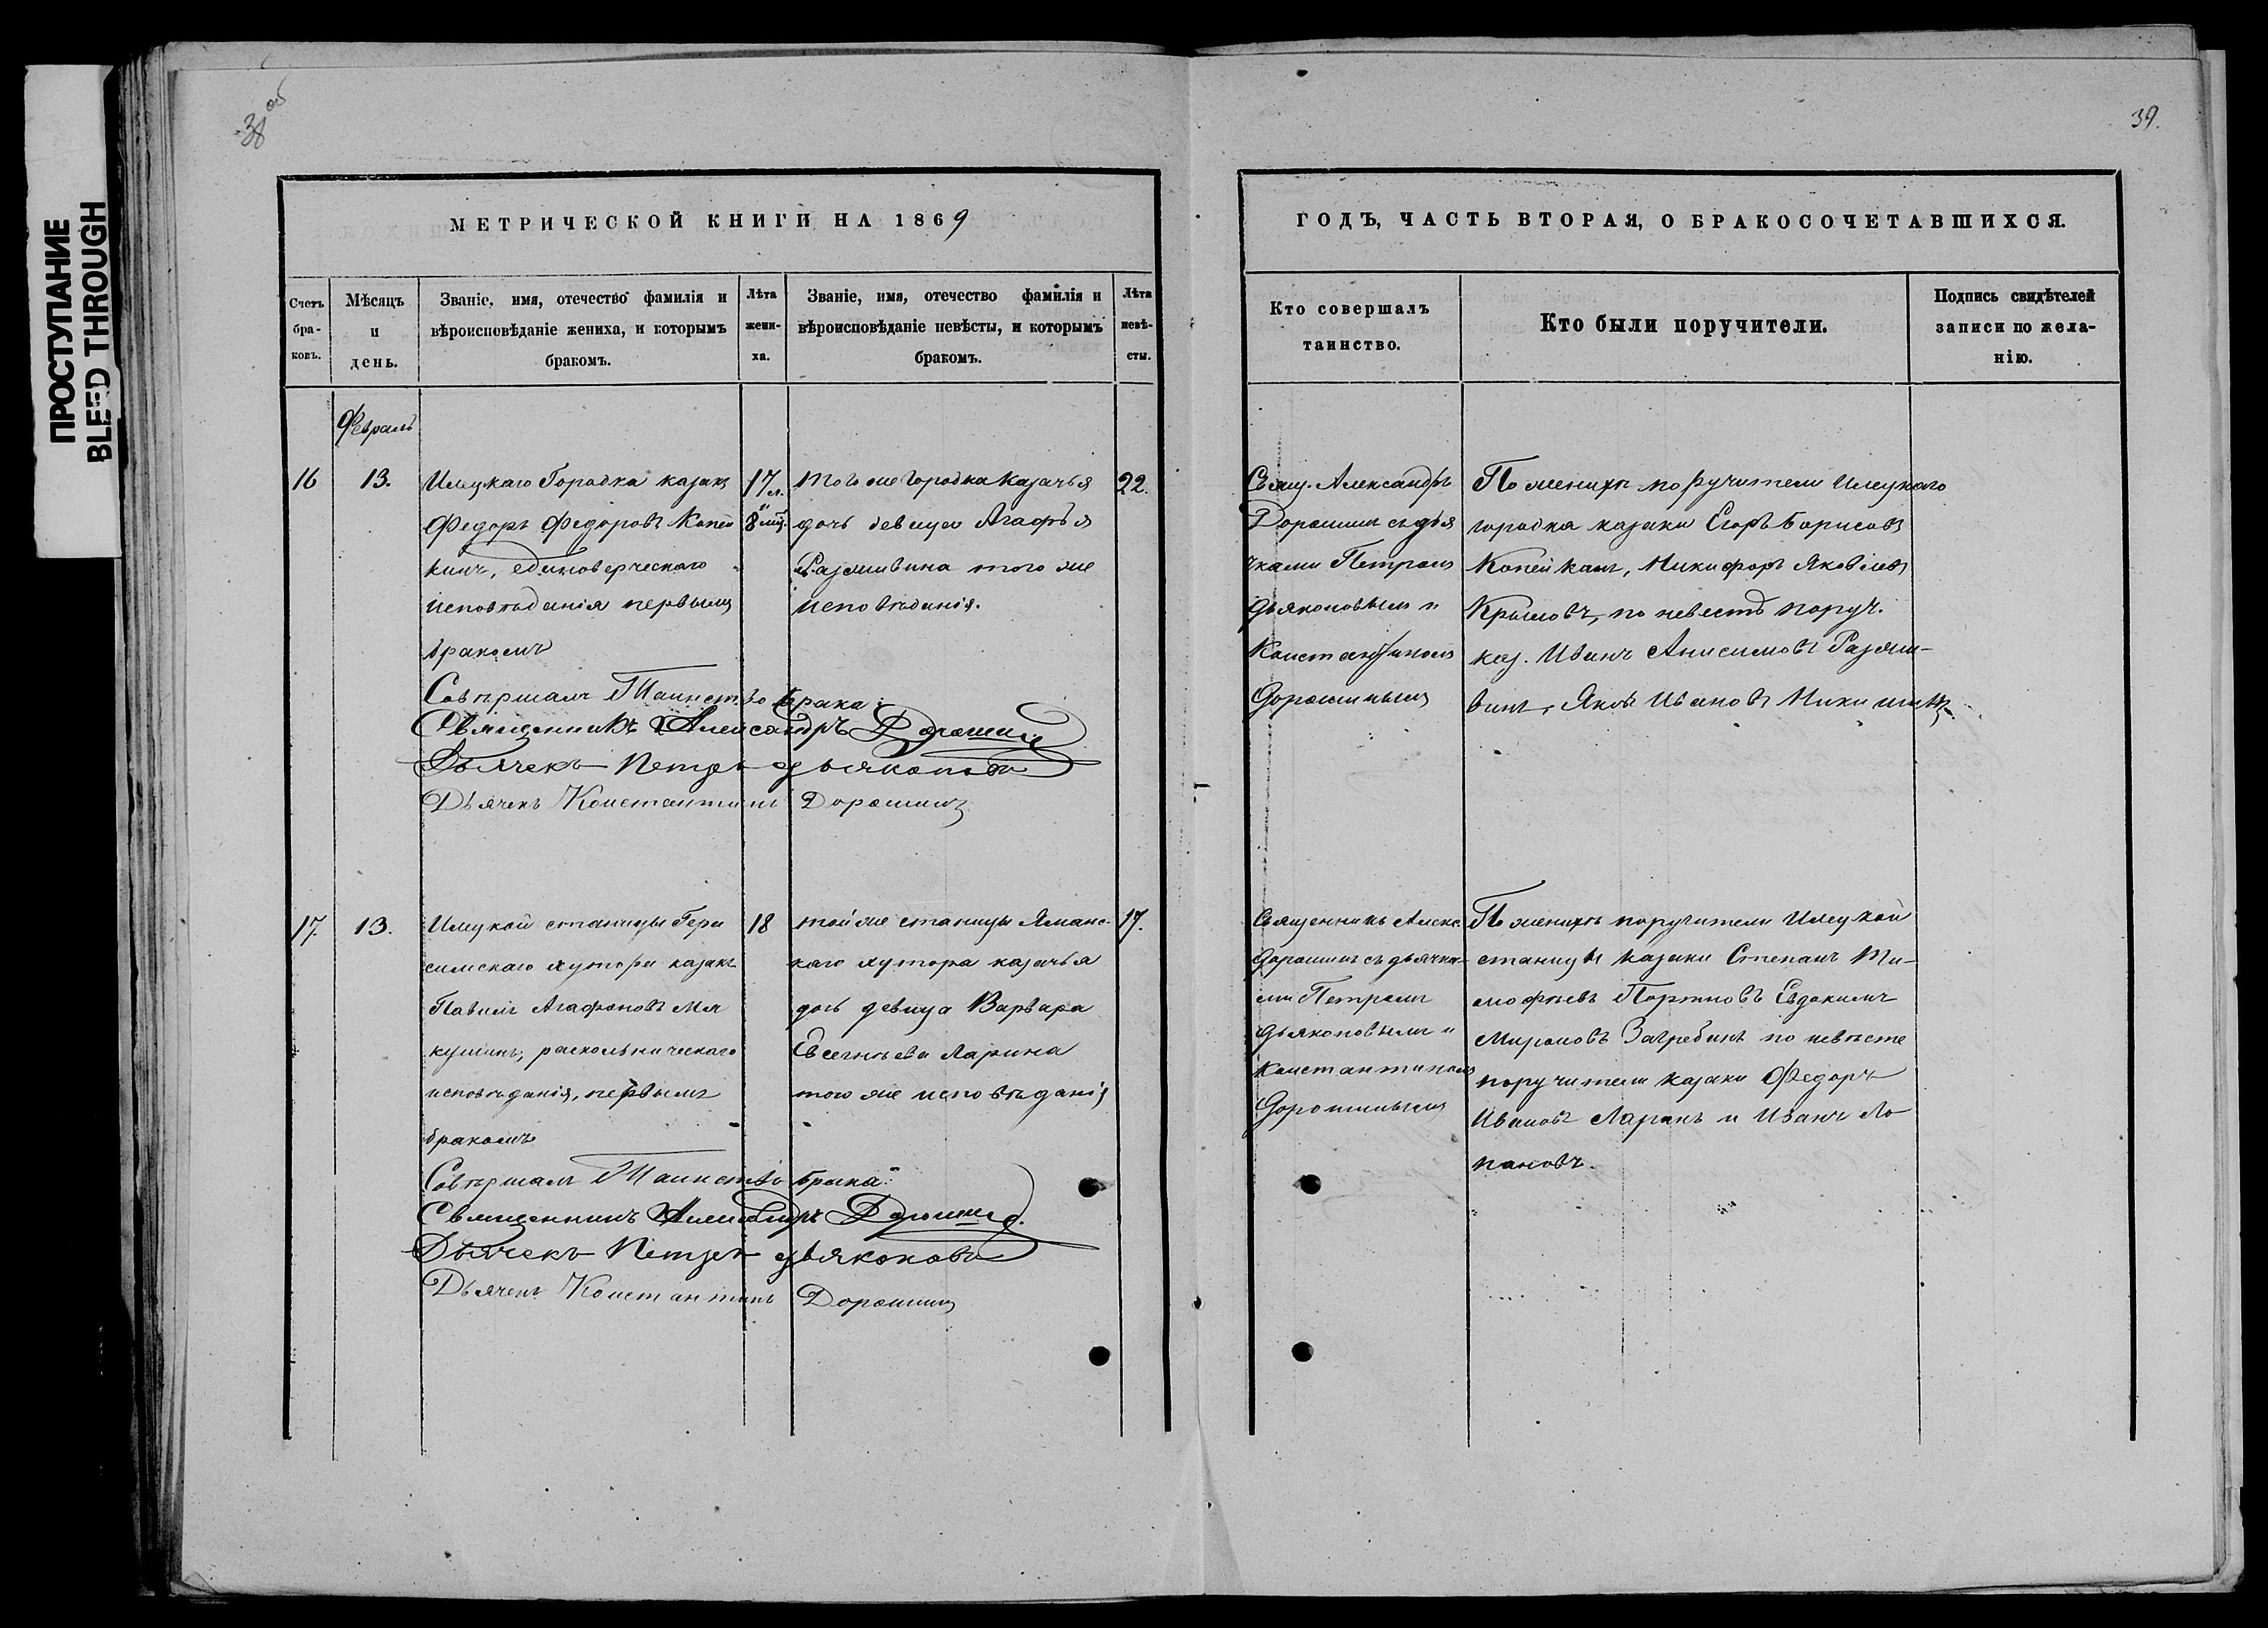 ПРОСТУПАНИЕ
BLEED THROUGH
38 об
39.
МЕТРИЧЕСКОЙ КНИГИ НА 1869
Счетъ бра- ковъ.
Мѣсяцъ и день.
Званіе, имя, отечество фамилія и вѣроисповѣданіе жениха, и которымъ бракомъ.
Лѣта жени- ха.
Званіе, имя, отечество фамилія и вѣроисповѣданіе невѣсты, и которымъ бракомъ.
Лѣта невѣ- сты.
Февраль
16
13.
Илецкаго Городка казакъ
Федоръ Федоровъ Копѣй
кинъ, единоверческаго
исповѣданія первымъ
бракомъ
17 л.
8 мц.
того же городка казачья
дочь девица Агафья
Разживина того же
исповѣданія.
22.
Совершалъ Таинство брака:
Священникъ Александръ Дорошинъ
Дьячекъ Петръ Дьяконовъ
Дьячекъ Константинъ Дорошинъ
17.
13.
Илецкой станицы Гера
симскаго хутора казакъ
Павелъ Агафоновъ Мя
кушинъ, раскольническаго
исповѣданія, первымъ
бракомъ
18
той же станицы Яманс-
каго хутора казачья
дочь девица Варвара
Евсегнѣева Ларина
того же исповѣданія
17.
Совершалъ Таинство брака:
Священникъ Александръ Дорошинъ.
Дьячекъ Петръ Дьяконовъ
Дьячекъ Константинъ Дорошинъ
ГОДЪ, ЧАСТЬ ВТОРАЯ, О БРАКОСОЧЕТАВШИХСЯ.
Кто совершалъ таинство.
Кто были поручители.
Подпись свидѣтелей записи по жела- нію.
Свящ. Александръ
Дорошинъ съ дья
чками Петромъ
Дьяконовымъ и
Константиномъ
Дорошинымъ
По женихѣ поручители Илецкаго
городка казаки Егоръ Борисовъ
Копейкинъ, Никифоръ Яковлевъ
Крыловъ, по невестѣ поруч.
каз. Иванъ Анисимовъ Разжи-
винъ, Яковъ Ивановъ Никишинъ
Священникъ Алекс.
Дорошинъ съ дьячка-
ми Петромъ
Дьяконовымъ и
Константиномъ
Дорошинымъ
По женихѣ поручители Илецкой
станицы казаки Степанъ Ти-
мофѣевъ Портновъ Евдокимъ
Мироновъ Загребинъ по невѣсте
поручители казаки Федоръ
Ивановъ Ларинъ и Иванъ Ло
пановъ.